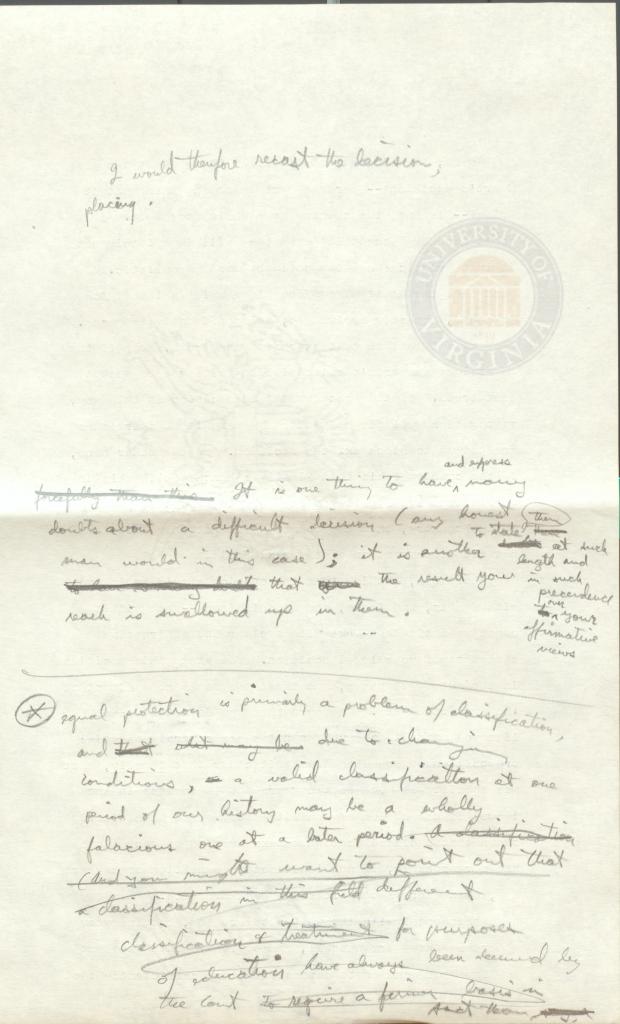 I would therefore recast the decision,
placing.
UNIVERSITY OF
VIRGINIA
and express
forcefully than this It is one thing to have many
doubts about a difficult decision (any honest
man would in this case); it is another to state them at such
length and
that the result you in such
precedence
reach is swallowed up in them.
over your
affirmative
views
* equal protection is primarily a problem of classification,
and that what may be due to changing
conditions, a valid classification at one
period of our history may be a wholly
falacious one at a later period. A classification
(And you might want to point out that
classification in this field different
classification & treatment for purposes
of education have always been deemed by
the Court to require a firmer basis in
fact than